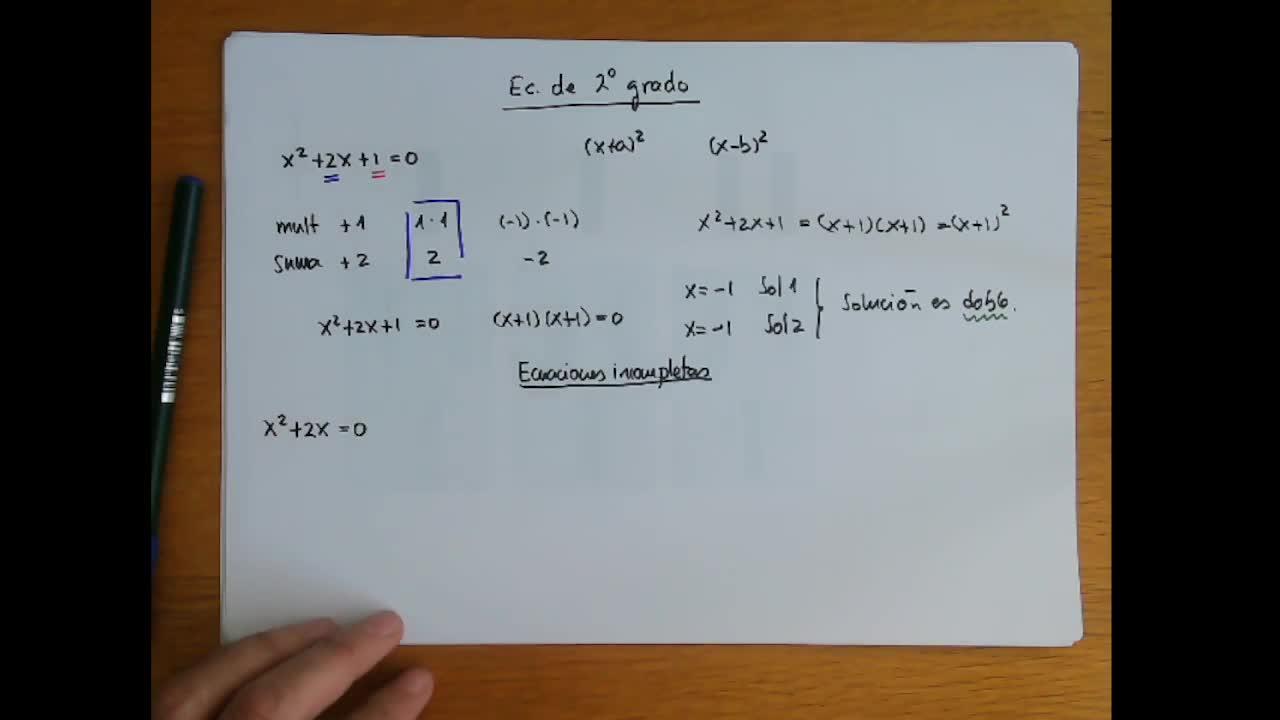 Ec. de 2º grado
(x+a)² (x-b)²
x²+2x+1=0
mult +1 1·1 (-1)·(-1) x²+2x+1 =(x+1)(x+1) =(x+1)²
suma +2 2 -2
x=-1 Sol 1
x=-1 Sol 2
Solución es doble.
x²+2x+1 =0 (x+1)(x+1)=0
Ecuaciones incompletas
x²+2x=0